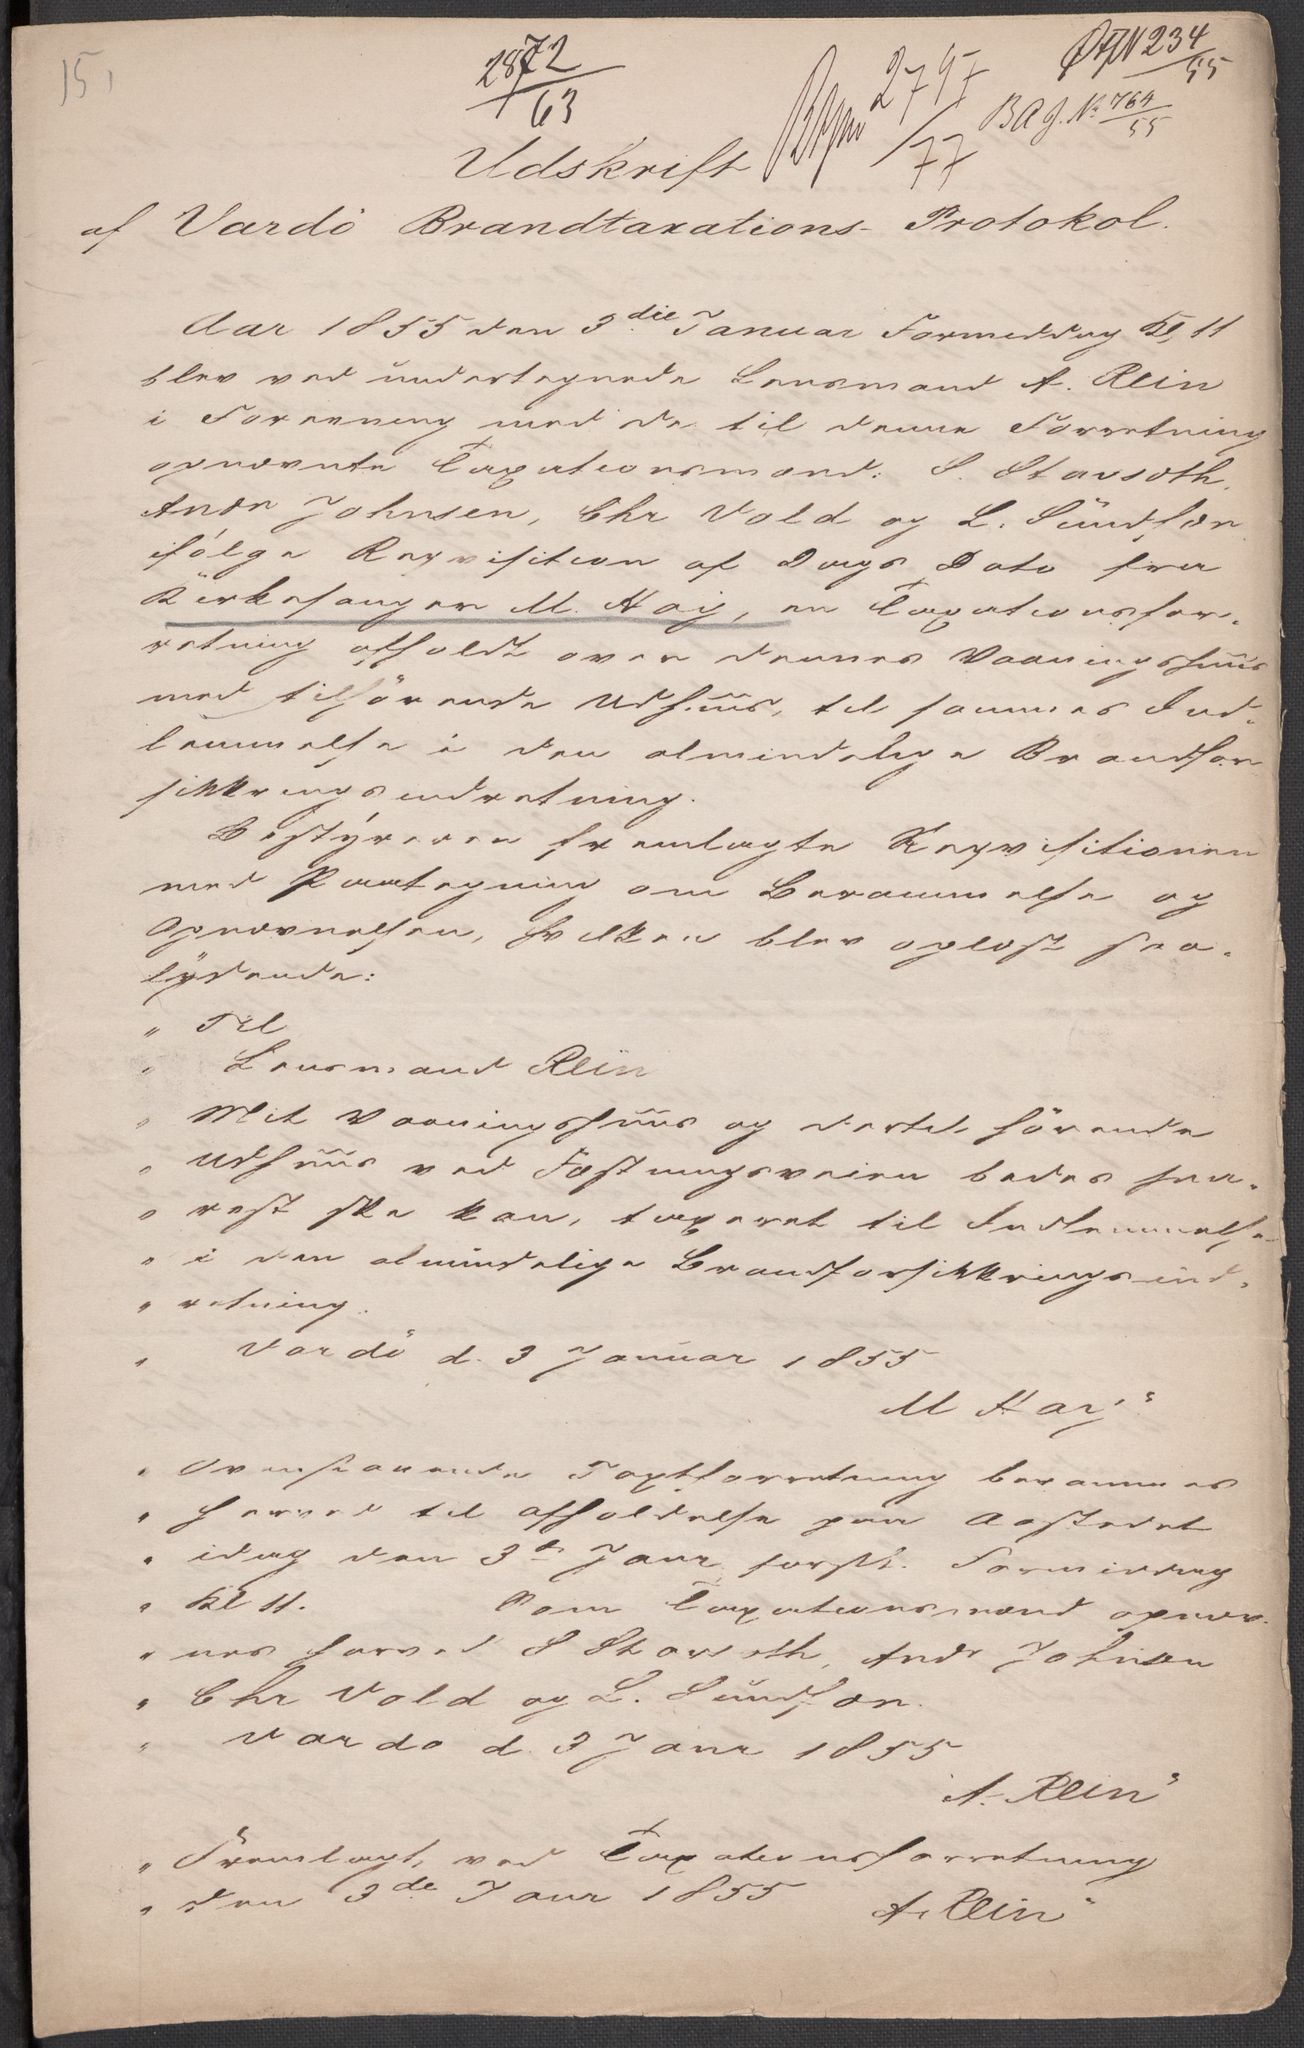 15,
2872/63
2797/77
234/55
B A J. No 764/55
Udskrift
af Vardö Brandtaxations-Protokol.
Aar 1855 den 3die Januar Formiddag Kl. 11
blev ved undertegnede Lensmand A. Rein
i Forening med de til denne Forretning
opnævnte Taxationsmænd: S. Stavseth,
Andr Johnsen, Chr Vold og L. Sundfær
ifölge Reqvisition af Dags Dato fra
Kirkesanger M. Haj, en Taxationsfor-
retning afholdt over dennes Vaaningshuus
med tilhörende Udhuus, til sammes Ind-
lemmelse i den almindelige Brandfor-
sikkringsindretning.
Bestyreren fremlagte Reqvisitionen
med Paategning om Berammelse og
Opnævnelsen, hvilken blev oplæst saa-
lydende:
" Til
" Lensmand Rein
" Mit Vaaningshuus og dertil hörende
" Udhuus ved Fæstningsveien bedes sna-
" rest ske kan, taxeret til Indlemmelse
" i den almindelige Brandforsikkringsind-
" retning.
" Vardö d. 3 Januar 1855
M Haj"
" Ovenstaaende Taxtforretning berammes
" herved til Afholdelse paa Aastedet
" idag den 3de Janr. Formiddag
" Kl 11. Som Taxationsmænd opnæv-
" nes herved S Stavseth, Andr Johnsen
" Chr Vold og L. Sundfær.
" Vardö d. 3 Janr 1855
A. Rein"
" Fremlagt ved Taxationsforretning
" den 3de Janr 1855
A. Rein"